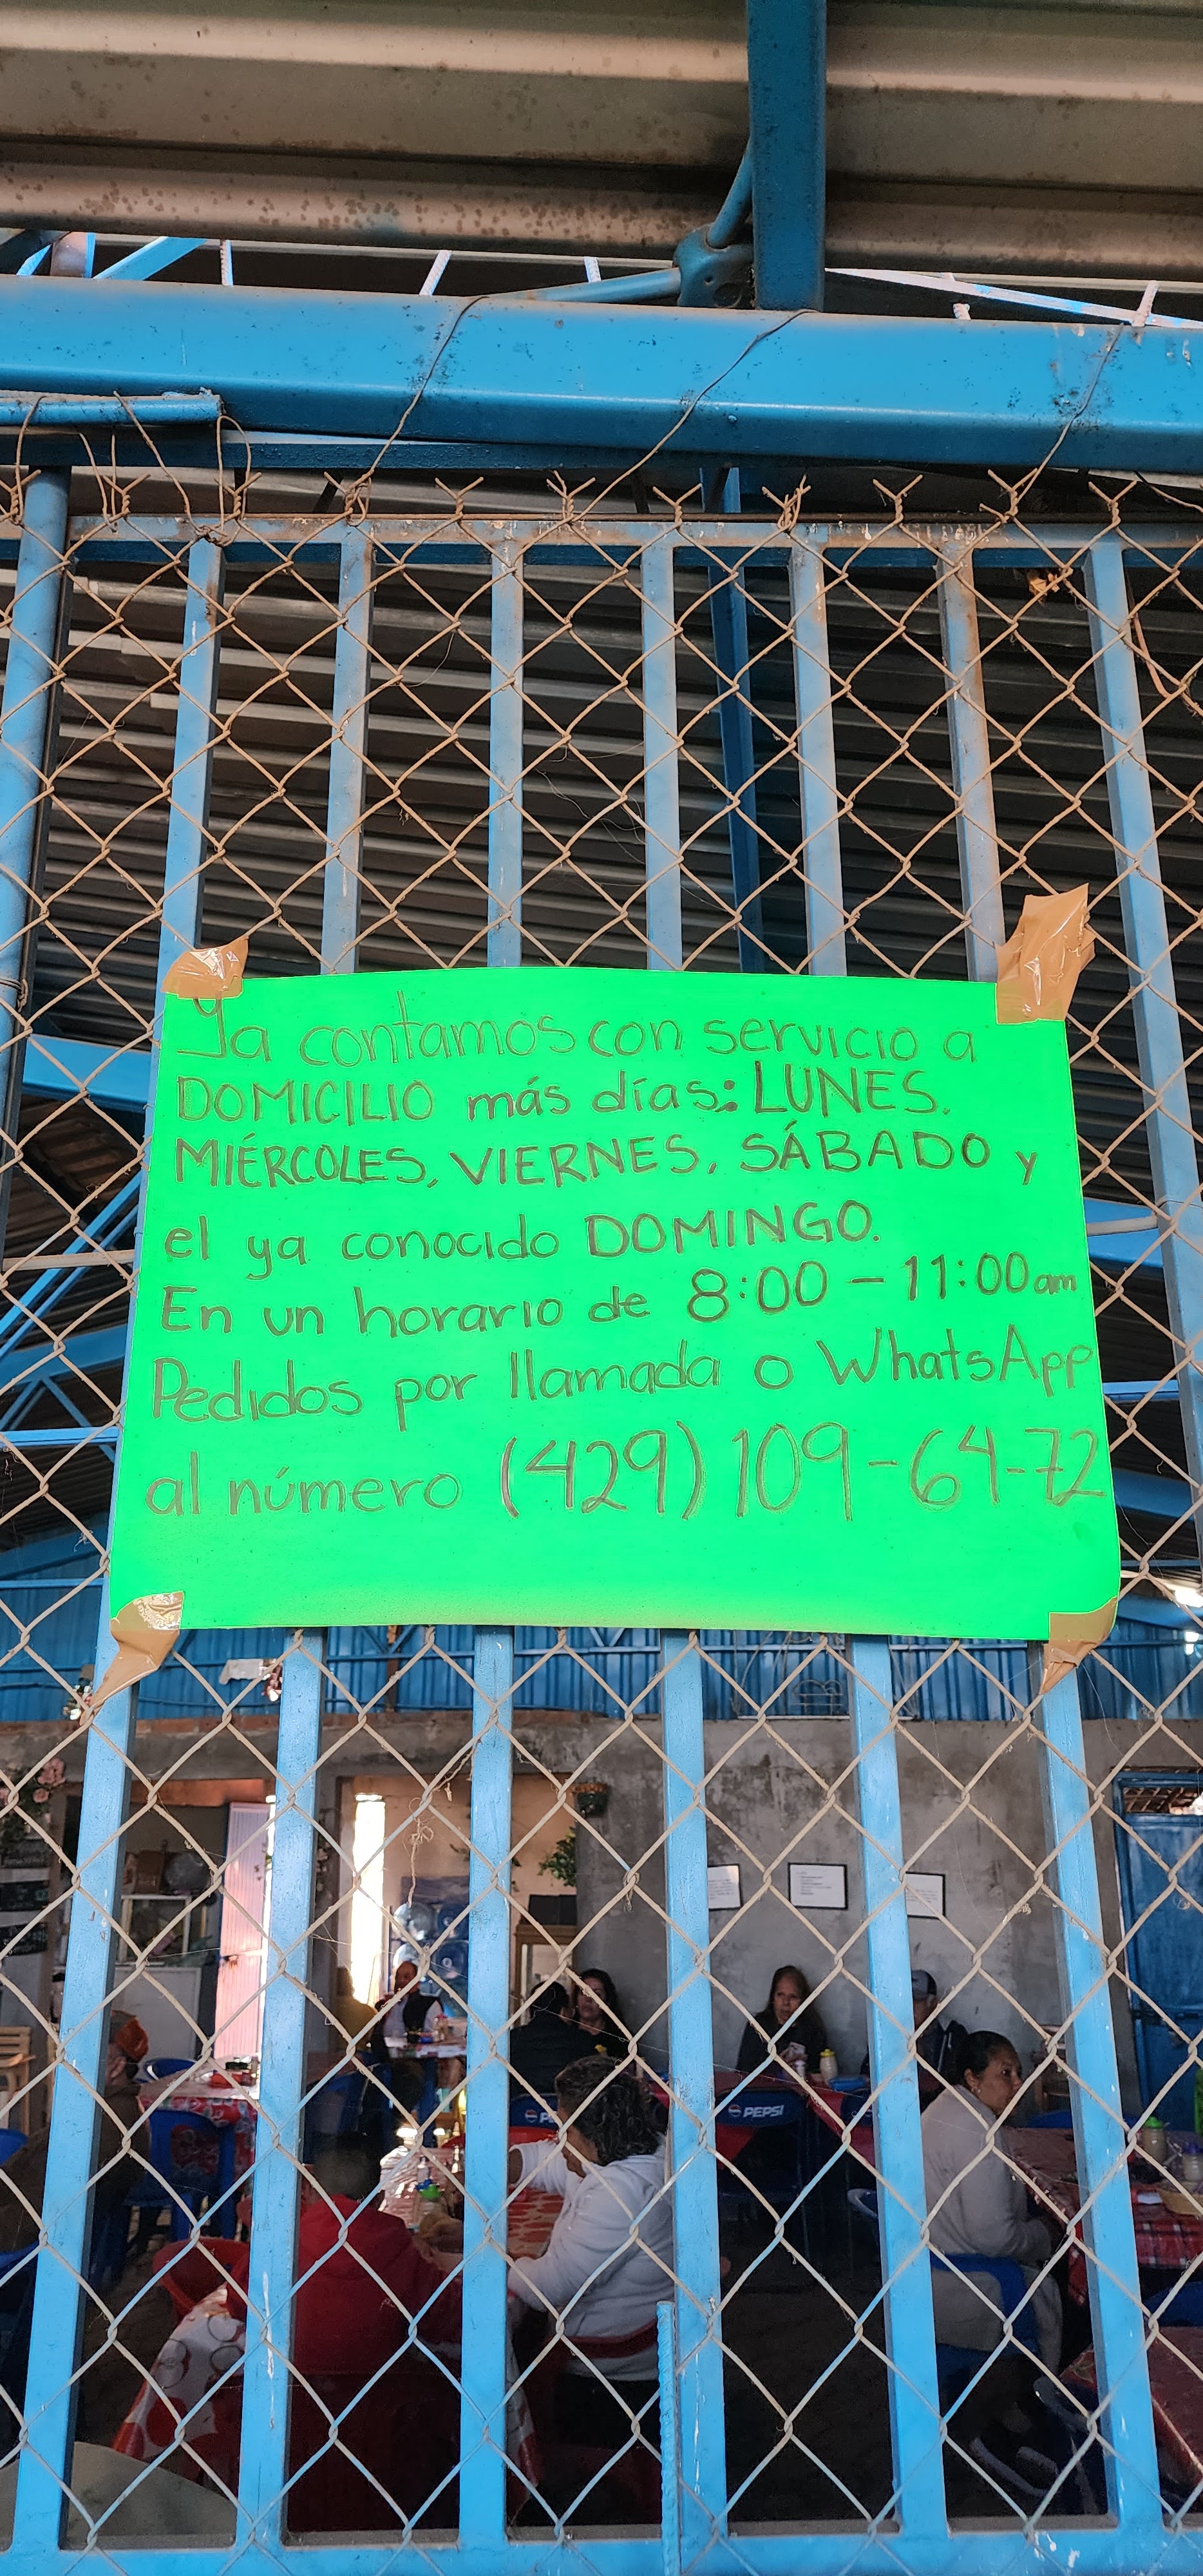 Ya contamos con servicio a
DOMICILIO más días: LUNES.
MIÉRCOLES, VIERNES, SÁBADO y
el ya conocido DOMINGO.
En un horario de 8:00 - 11:00am
Pedidos por llamada o WhatsApp
al número (429) 109-64-72
PEPSI